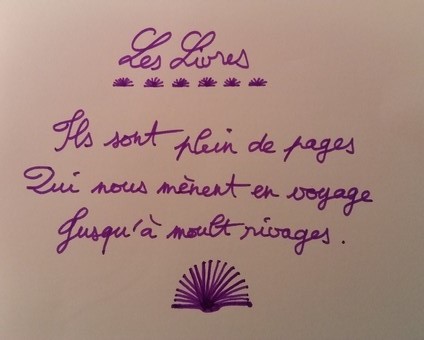 Les Livres
Ils sont plein de pages
Qui nous mènent en voyage
Jusqu'à moult rivages.